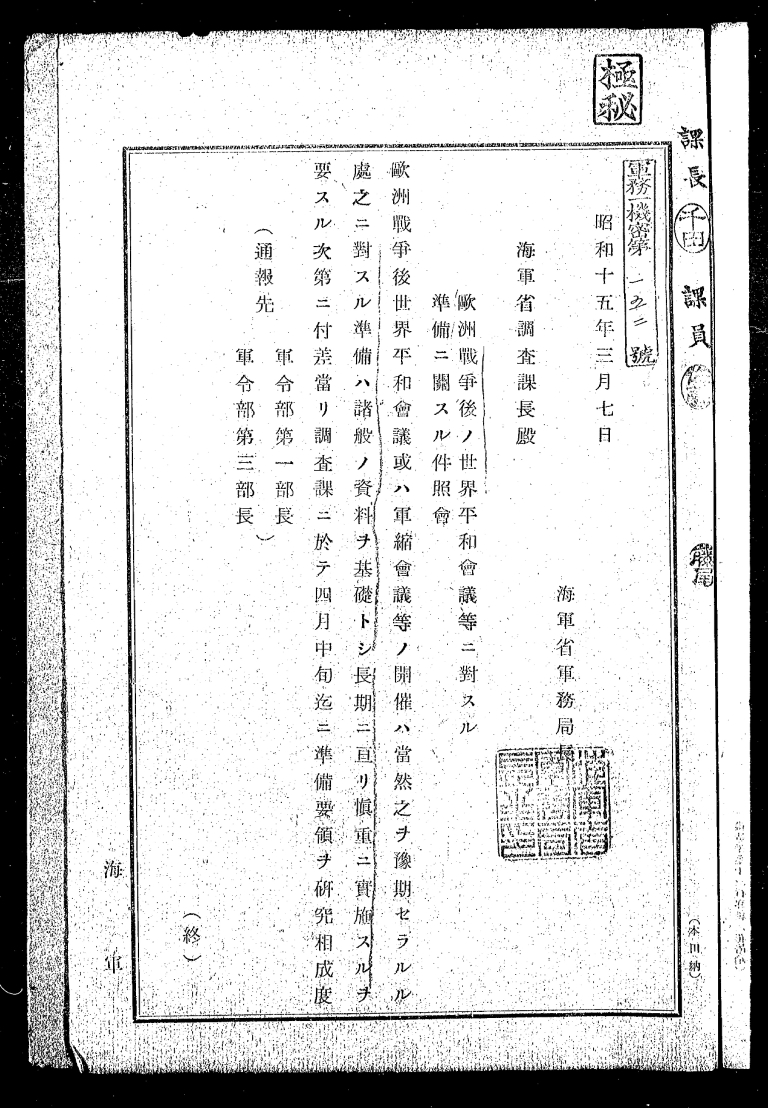 極秘
課長 千田 課員
藤尾
軍務一機密第一五二號
昭和十五年三月七日
海軍省軍務局長
海軍省調査課長殿
歐洲戰爭後ノ世界平和會議等ニ對スル
準備ニ關スル件照會
歐洲戰爭後世界平和會議或ハ軍縮會議等ノ開催ハ當然之ヲ豫期セラルル
處之ニ對スル準備ハ諸般ノ資料ヲ基礎トシ長期ニ亘リ愼重ニ實施スルヲ
要スル次第ニ付差當リ調査課ニ於テ四月中旬迄ニ準備要領ヲ硏究相成度
(通報先
軍令部第一部長
軍令部第三部長)
(終)
海軍
(本田納)